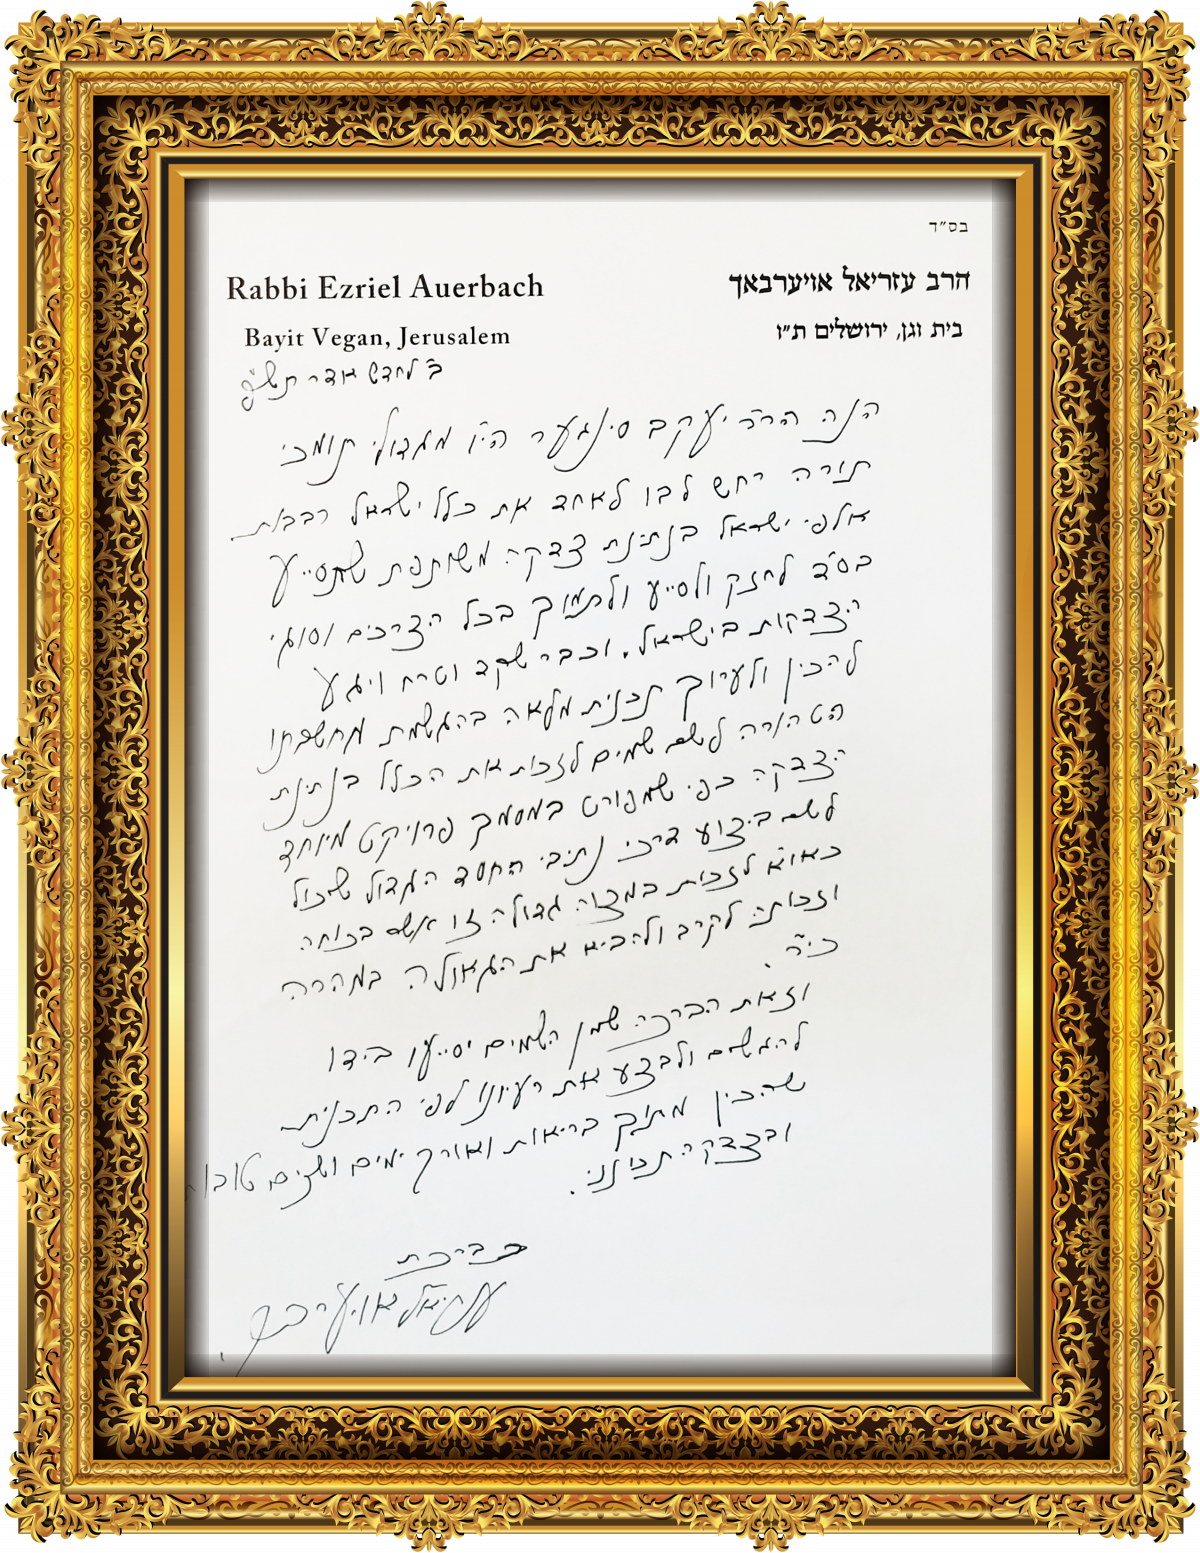 בס״ד
Rabbi Ezriel Auerbach
הרב עזריאל אויערבאך
Bayit Vegan, Jerusalem
בית וגן, ירושלים ת״ו
ב׳ לחדש אדר תש״פ
הנה הר״ר יעקב סינגער הי״ו מגדולי תומכי
תורה רחש לבו לאחד את כלל ישראל רבבות
אלפי ישראל בנתינת צדקה משותפת שתסייע
בס״ד לחזק ולסייע ולתמוך בכל הצרכים וסוגי
הצדקות בישראל. וכבר שקד וטרח ויגע
להכין ולערוך תכנית מלאה בהגשמת מחשבתו
הטהורה לשם שמים לזכות את הכלל בנתינת
הצדקה כפי שמפורט במסמך פרויקט מיוחד
לשם ביצוע דרכי נתיבי החסד הגדול שיכול
כאו״א לזכות במצוה גדולה זו אשר בכוחה
וזכותה לקרב ולהביא את הגאולה במהרה
כי״ר.
וזאת הברכה שמן השמים יסייעו בידו
להגשים ולבצע את רעיונו לפי התכנית
שהכין מתוך בריאות ואורך ימים ושנים טובות
ובצדקה תכונני.
בברכת
עזריאל אויערבאך